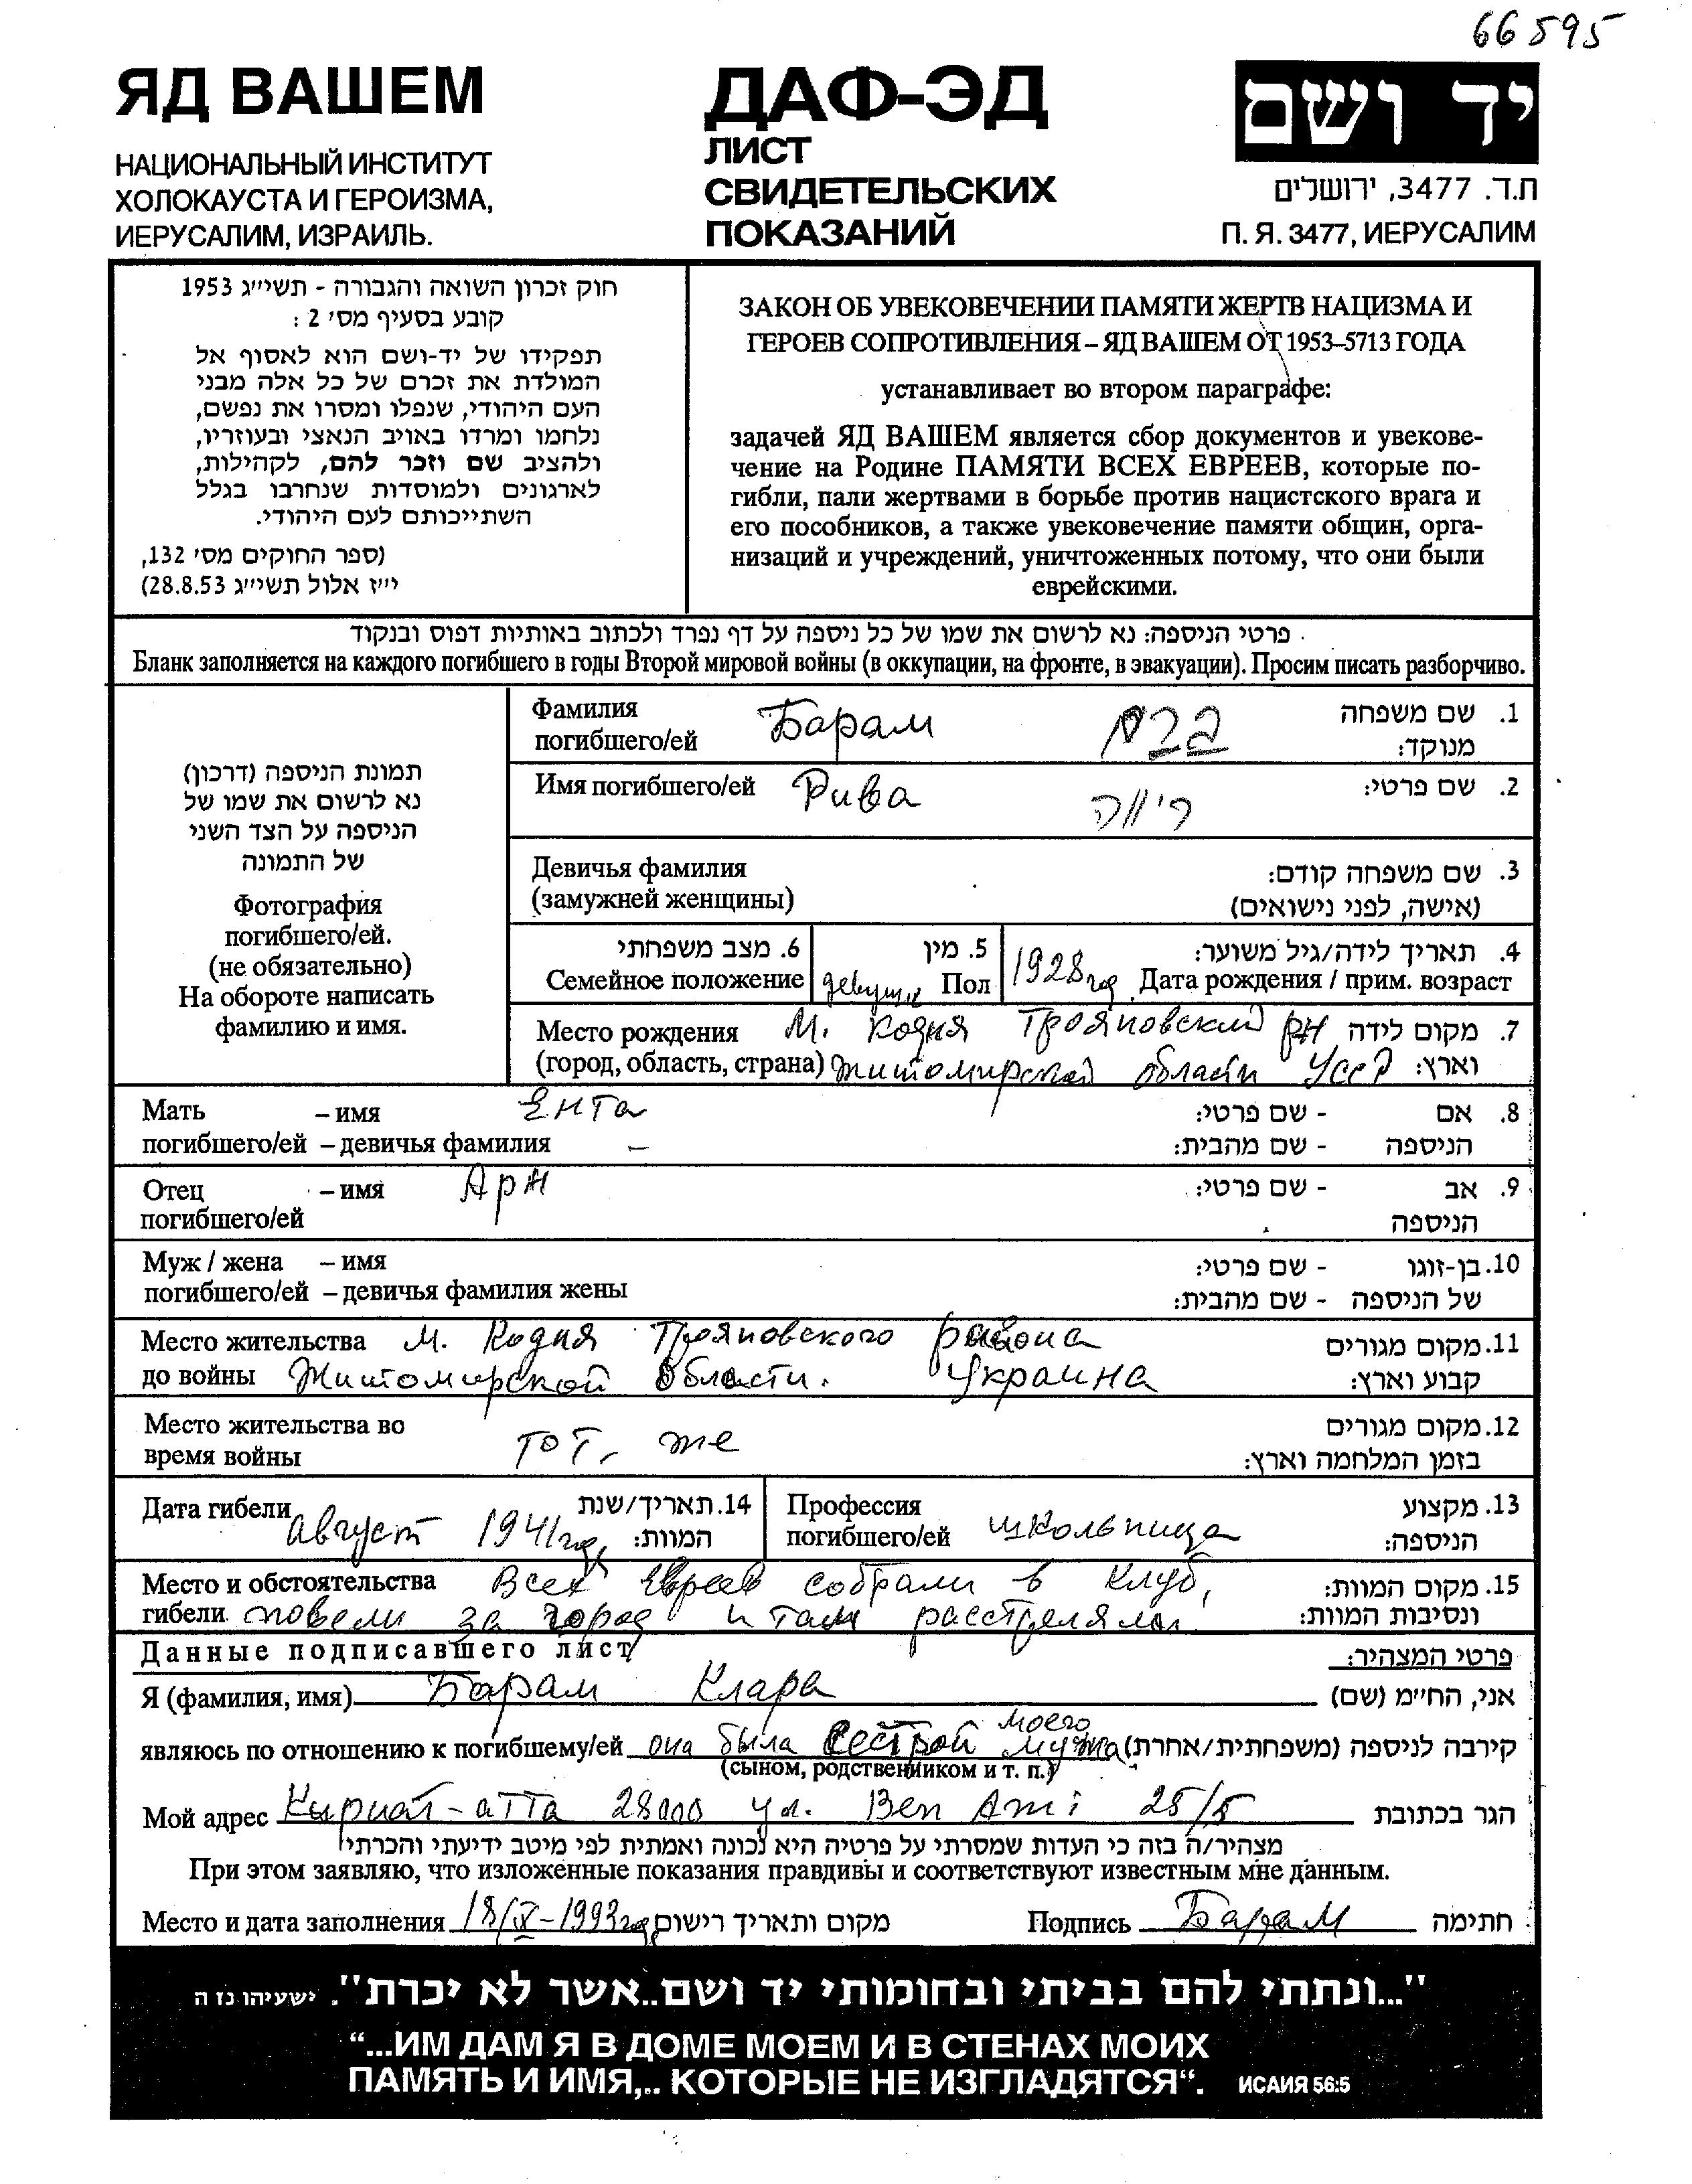 66595
ЯД ВАШЕМ
НАЦИОНАЛЬНЫЙ ИНСТИТУТ
ХОЛОКАУСТА И ГЕРОИЗМА,
ИЕРУСАЛИМ, ИЗРАИЛЬ.
ДАФ-ЭД
ЛИСТ
СВИДЕТЕЛЬСКИХ
ПОКАЗАНИЙ
יד ושם
ת.ד. 3477, ירושלים
П. Я. 3477, ИЕРУСАЛИМ
חוק זכרון השואה והגבורה - תשי״ג 1953
קובע בסעיף מס׳ 2 :
תפקידו של יד-ושם הוא לאסוף אל
המולדת את זכרם של כל אלה מבני
העם היהודי, שנפלו ומסרו את נפשם,
נלחמו ומרדו באויב הנאצי ובעוזריו,
ולהציב שם וזכר להם, לקהילות,
לארגונים ולמוסדות שנחרבו בגלל
השתייכותם לעם היהודי.
(ספר החוקים מס׳ 132,
י״ז אלול תשי״ג 28.8.53)
ЗАКОН ОБ УВЕКОВЕЧЕНИИ ПАМЯТИ ЖЕРТВ НАЦИЗМА И
ГЕРОЕВ СОПРОТИВЛЕНИЯ – ЯД ВАШЕМ ОТ 1953–5713 ГОДА
устанавливает во втором параграфе:
задачей ЯД ВАШЕМ является сбор документов и увекове-
чение на Родине ПАМЯТИ ВСЕХ ЕВРЕЕВ, которые по-
гибли, пали жертвами в борьбе против нацистского врага и
его пособников, а также увековечение памяти общин, орга-
низаций и учреждений, уничтоженных потому, что они были
еврейскими.
פרטי הניספה: נא לרשום את שמו של כל ניספה על דף נפרד ולכתוב באותיות דפוס ובנקוד
Бланк заполняется на каждого погибшего в годы Второй мировой войны (в оккупации, на фронте, в эвакуации). Просим писать разборчиво.
תמונת הניספה (דרכון)
נא לרשום את שמו של
הניספה על הצד השני
של התמונה
Фотография
погибшего/ей.
(не обязательно)
На обороте написать
фамилию и имя.
Фамилия погибшего/ей Барам ברם 1. שם משפחה
מנוקד:
Имя погибшего/ей Рива ריווה 2. שם פרטי:
Девичья фамилия 3. שם משפחה קודם:
(замужней женщины) (אישה, לפני נישואים)
6. מצב משפחתי 5. מין 4. תאריך לידה/גיל משוער:
Семейное положение девушка Пол 1928 год Дата рождения / прим. возраст
Место рождения М. Кодня Трояновский рн 7. מקום לידה
(город, область, страна) Житомирской области УССР וארץ:
Мать – имя Ента 8. אם - שם פרטי:
погибшего/ей – девичья фамилия – הניספה - שם מהבית:
Отец – имя Арн 9. אב - שם פרטי:
погибшего/ей הניספה
Муж / жена – имя 10. בן-זוגו - שם פרטי:
погибшего/ей – девичья фамилия жены של הניספה - שם מהבית:
Место жительства М. Кодня Трояновского района 11. מקום מגורים
до войны Житомирской области. Украина קבוע וארץ:
Место жительства во 12. מקום מגורים
время войны тот, же בזמן המלחמה וארץ:
Дата гибели август 1941 год, 14. תאריך/שנת
המוות:
Профессия 13. מקצוע
погибшего/ей школьница הניספה:
Место и обстоятельства Всех Евреев собрали в клуб, 15. מקום המוות:
гибели повели за город и там расстреляли ונסיבות המוות:
Данные подписавшего лист פרטי המצהיר:
Я (фамилия, имя) Барам Клара אני, החי״מ (שם)
являюсь по отношению к погибшему/ей она была сестрой моего мужа קירבה לניספה (משפחתית/אחרת)
(сыном, родственником и т. п.)
Мой адрес Кириат-атта 28000 ул. Ben Ami 25/5 הגר בכתובת
מצהיר/ה בזה כי העדות שמסרתי על פרטיה היא נכונה ואמתית לפי מיטב ידיעתי והכרתי
При этом заявляю, что изложенные показания правдивы и соответствуют известным мне данным.
Место и дата заполнения 18/IX-1993 год מקום ותאריך רישום Подпись Барам חתימה
"...ונתתי להם בביתי ובחומותי יד ושם..אשר לא יכרת". ישעיהו נז ה
“...ИМ ДАМ Я В ДОМЕ МОЕМ И В СТЕНАХ МОИХ
ПАМЯТЬ И ИМЯ,.. КОТОРЫЕ НЕ ИЗГЛАДЯТСЯ“. ИСАИЯ 56:5